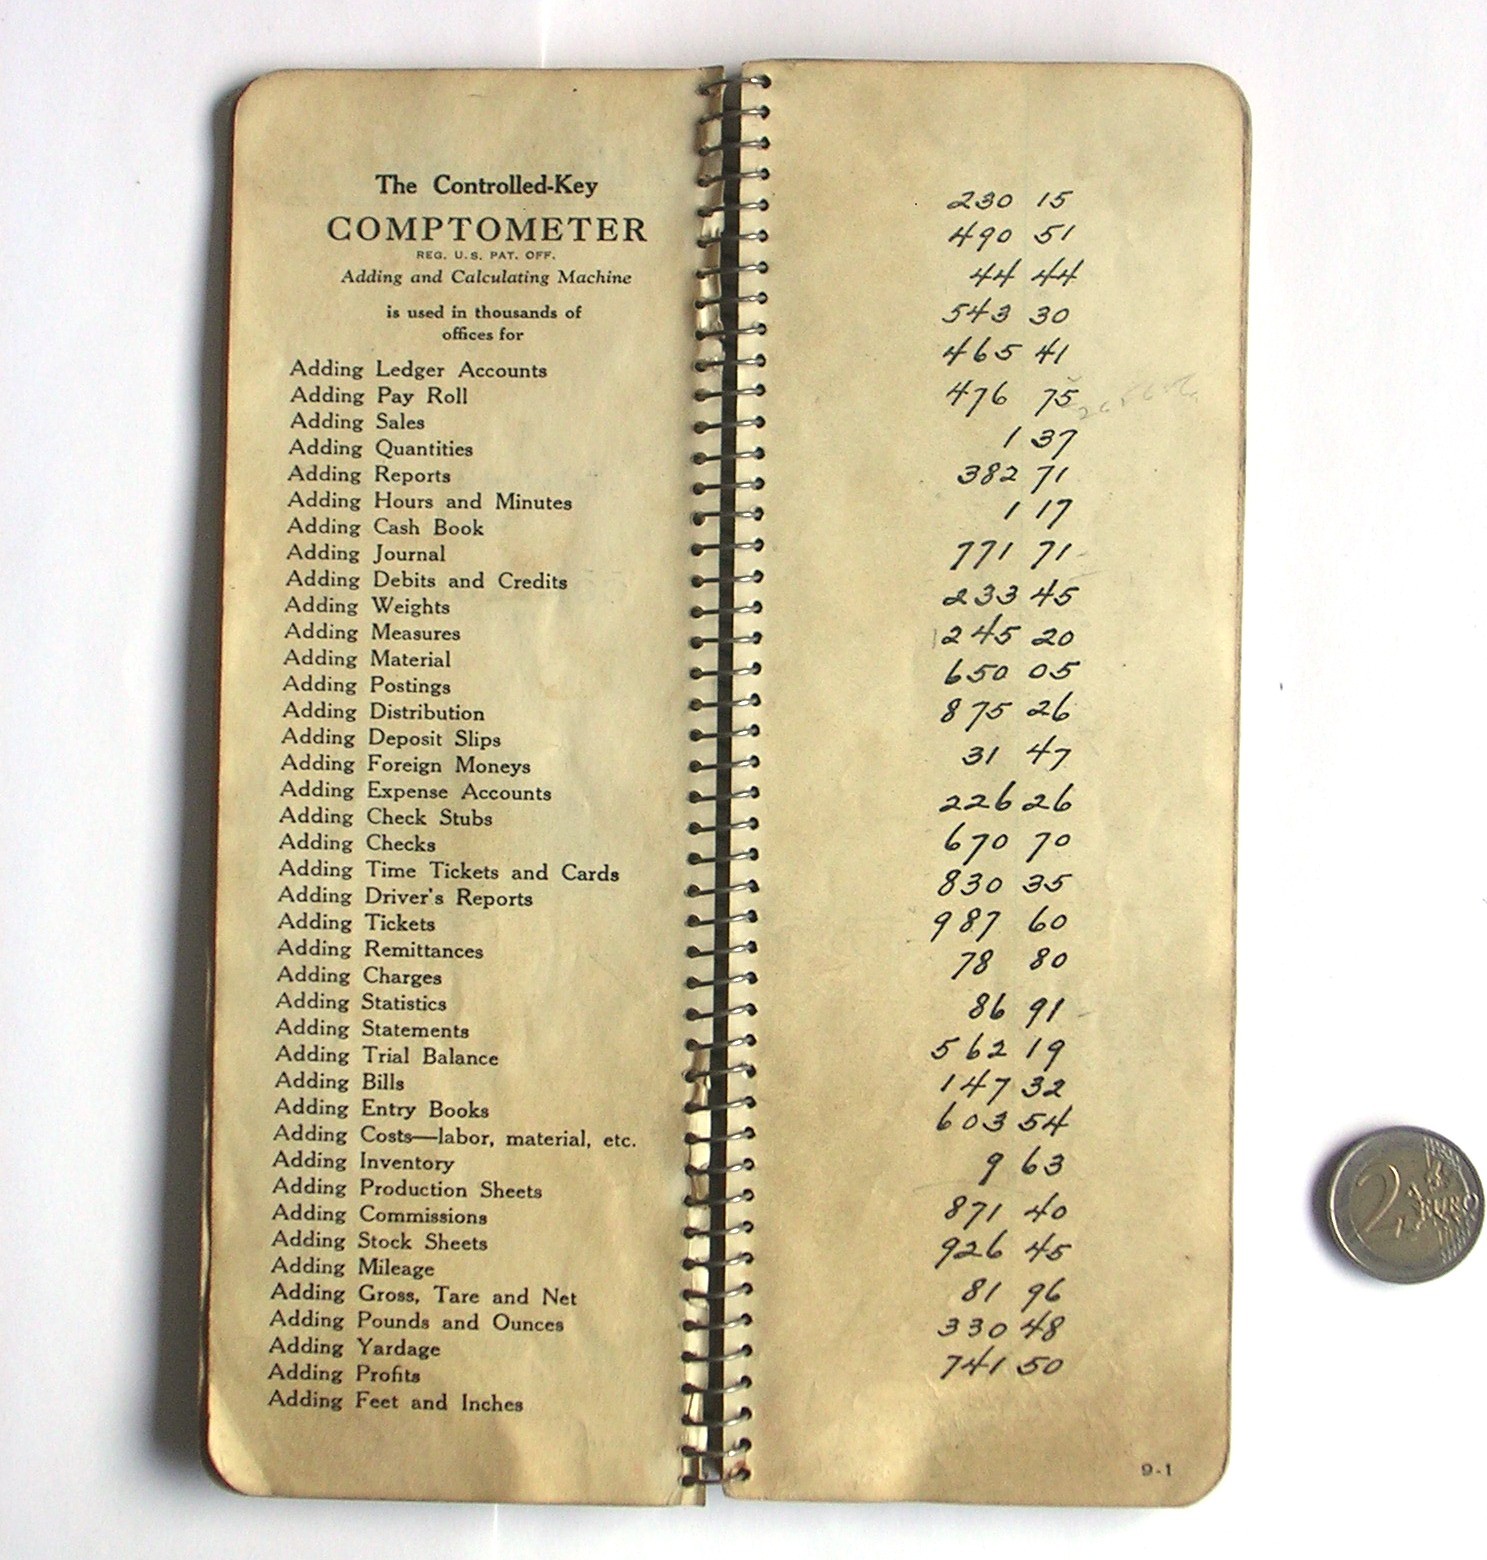 The Controlled-Key
COMPTOMETER
REG. U.S. PAT. OFF.
Adding and Calculating Machine
is used in thousands of
offices for
Adding Ledger Accounts
Adding Pay Roll
Adding Sales
Adding Quantities
Adding Reports
Adding Hours and Minutes
Adding Cash Book
Adding Journal
Adding Debits and Credits
Adding Weights
Adding Measures
Adding Material
Adding Postings
Adding Distribution
Adding Deposit Slips
Adding Foreign Moneys
Adding Expense Accounts
Adding Check Stubs
Adding Checks
Adding Time Tickets and Cards
Adding Driver's Reports
Adding Tickets
Adding Remittances
Adding Charges
Adding Statistics
Adding Statements
Adding Trial Balance
Adding Bills
Adding Entry Books
Adding Costs—labor, material, etc.
Adding Inventory
Adding Production Sheets
Adding Commissions
Adding Stock Sheets
Adding Mileage
Adding Gross, Tare and Net
Adding Pounds and Ounces
Adding Yardage
Adding Profits
Adding Feet and Inches
230 15
490 51
44 44
543 30
465 41
476 75
1 37
382 71
1 17
771 71
233 45
245 20
650 05
875 26
31 47
226 26
670 70
830 35
987 60
78 80
86 91
562 19
147 32
603 54
9 63
871 40
926 45
81 96
330 48
741 50
9-1
2 EURO